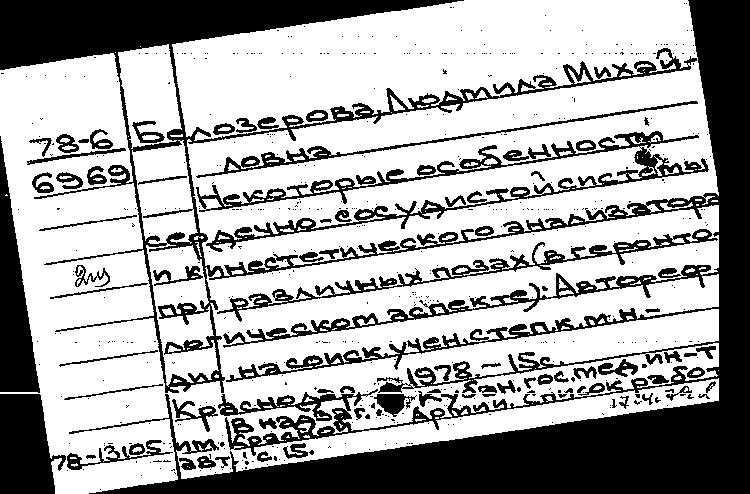 78-6
6969
Белозерова, Людмила Михай-
ловна.
Некоторые особенности
сердечно-сосудистой системы
и кинестетического анализатора
при различных позах (в геронто-
логическом аспекте): Автореф.
дис. на соиск. учен. степ. к.м.н.-
Краснодар, 1978.- 15с.
В надзаг.: Кубан. гос. мед. ин-т
им. Красной Армии. Список работ
авт.: с. 15.
78-13105